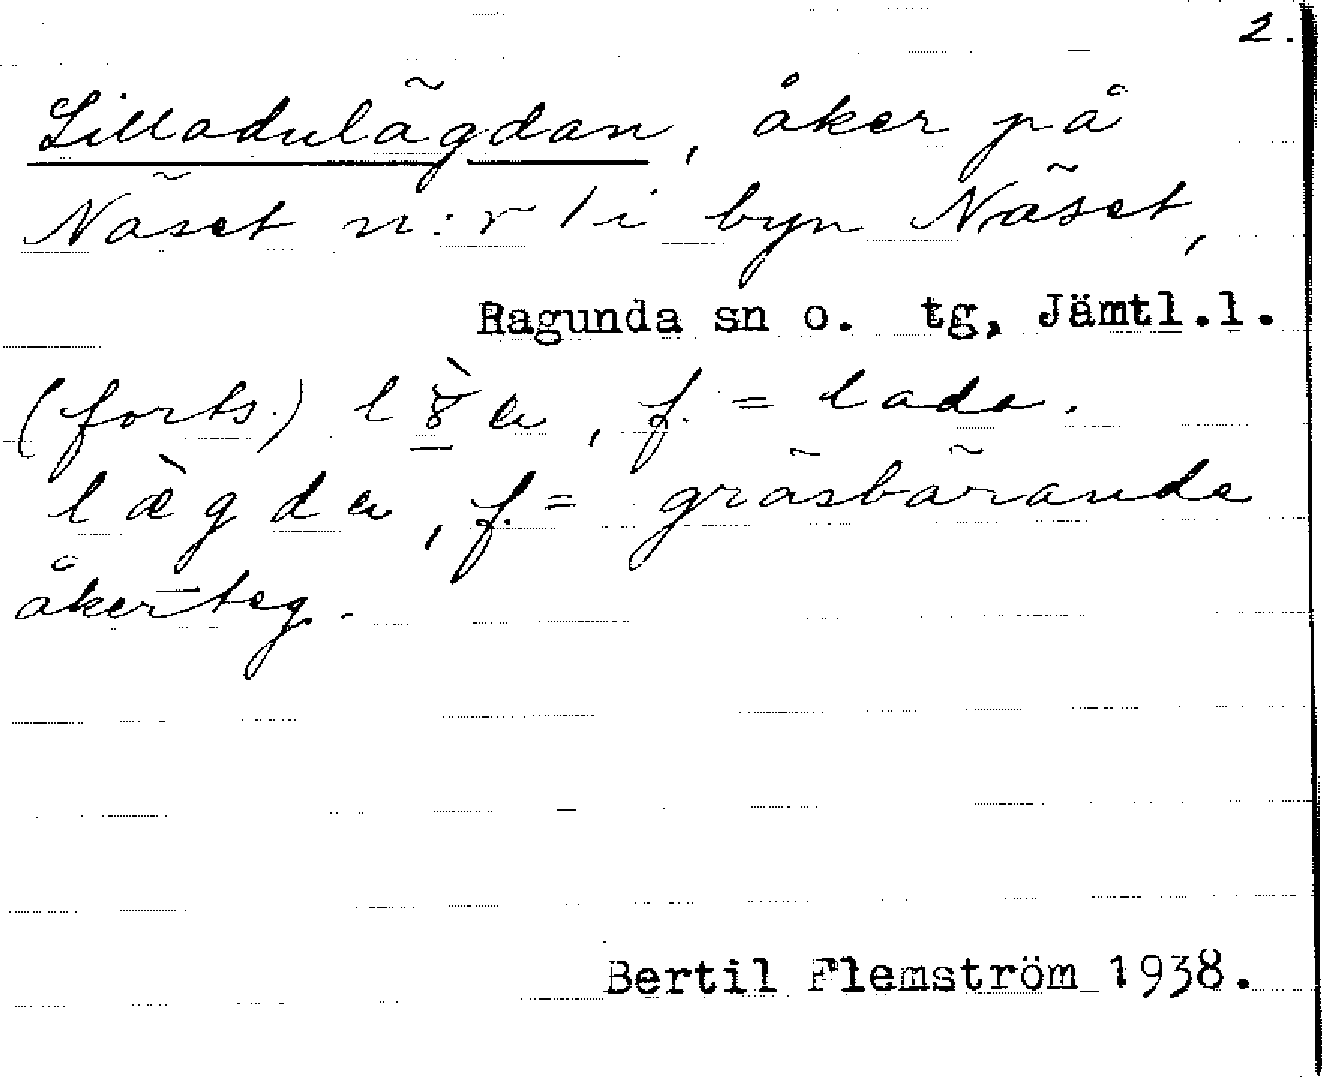 2.
Lilladulägdan, åker på
Näset n:r 1 i byn Näset,
Ragunda sn o. tg, Jämtl.l.
(forts.) , f. = lade.
lægda, f. = gräsbärande
åkerteg.
Bertil Flemström 1938.